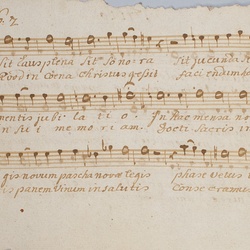 Sit laus plena sit sonora Sit jucunda
Quod in Coena Christus gessit faciendum
mentis jubilatio. In hac mensa no
in sui memoriam. Docti Sacris in
gis novum pascha novae legis phase vetus
is panem vinum in salutis Consecramus